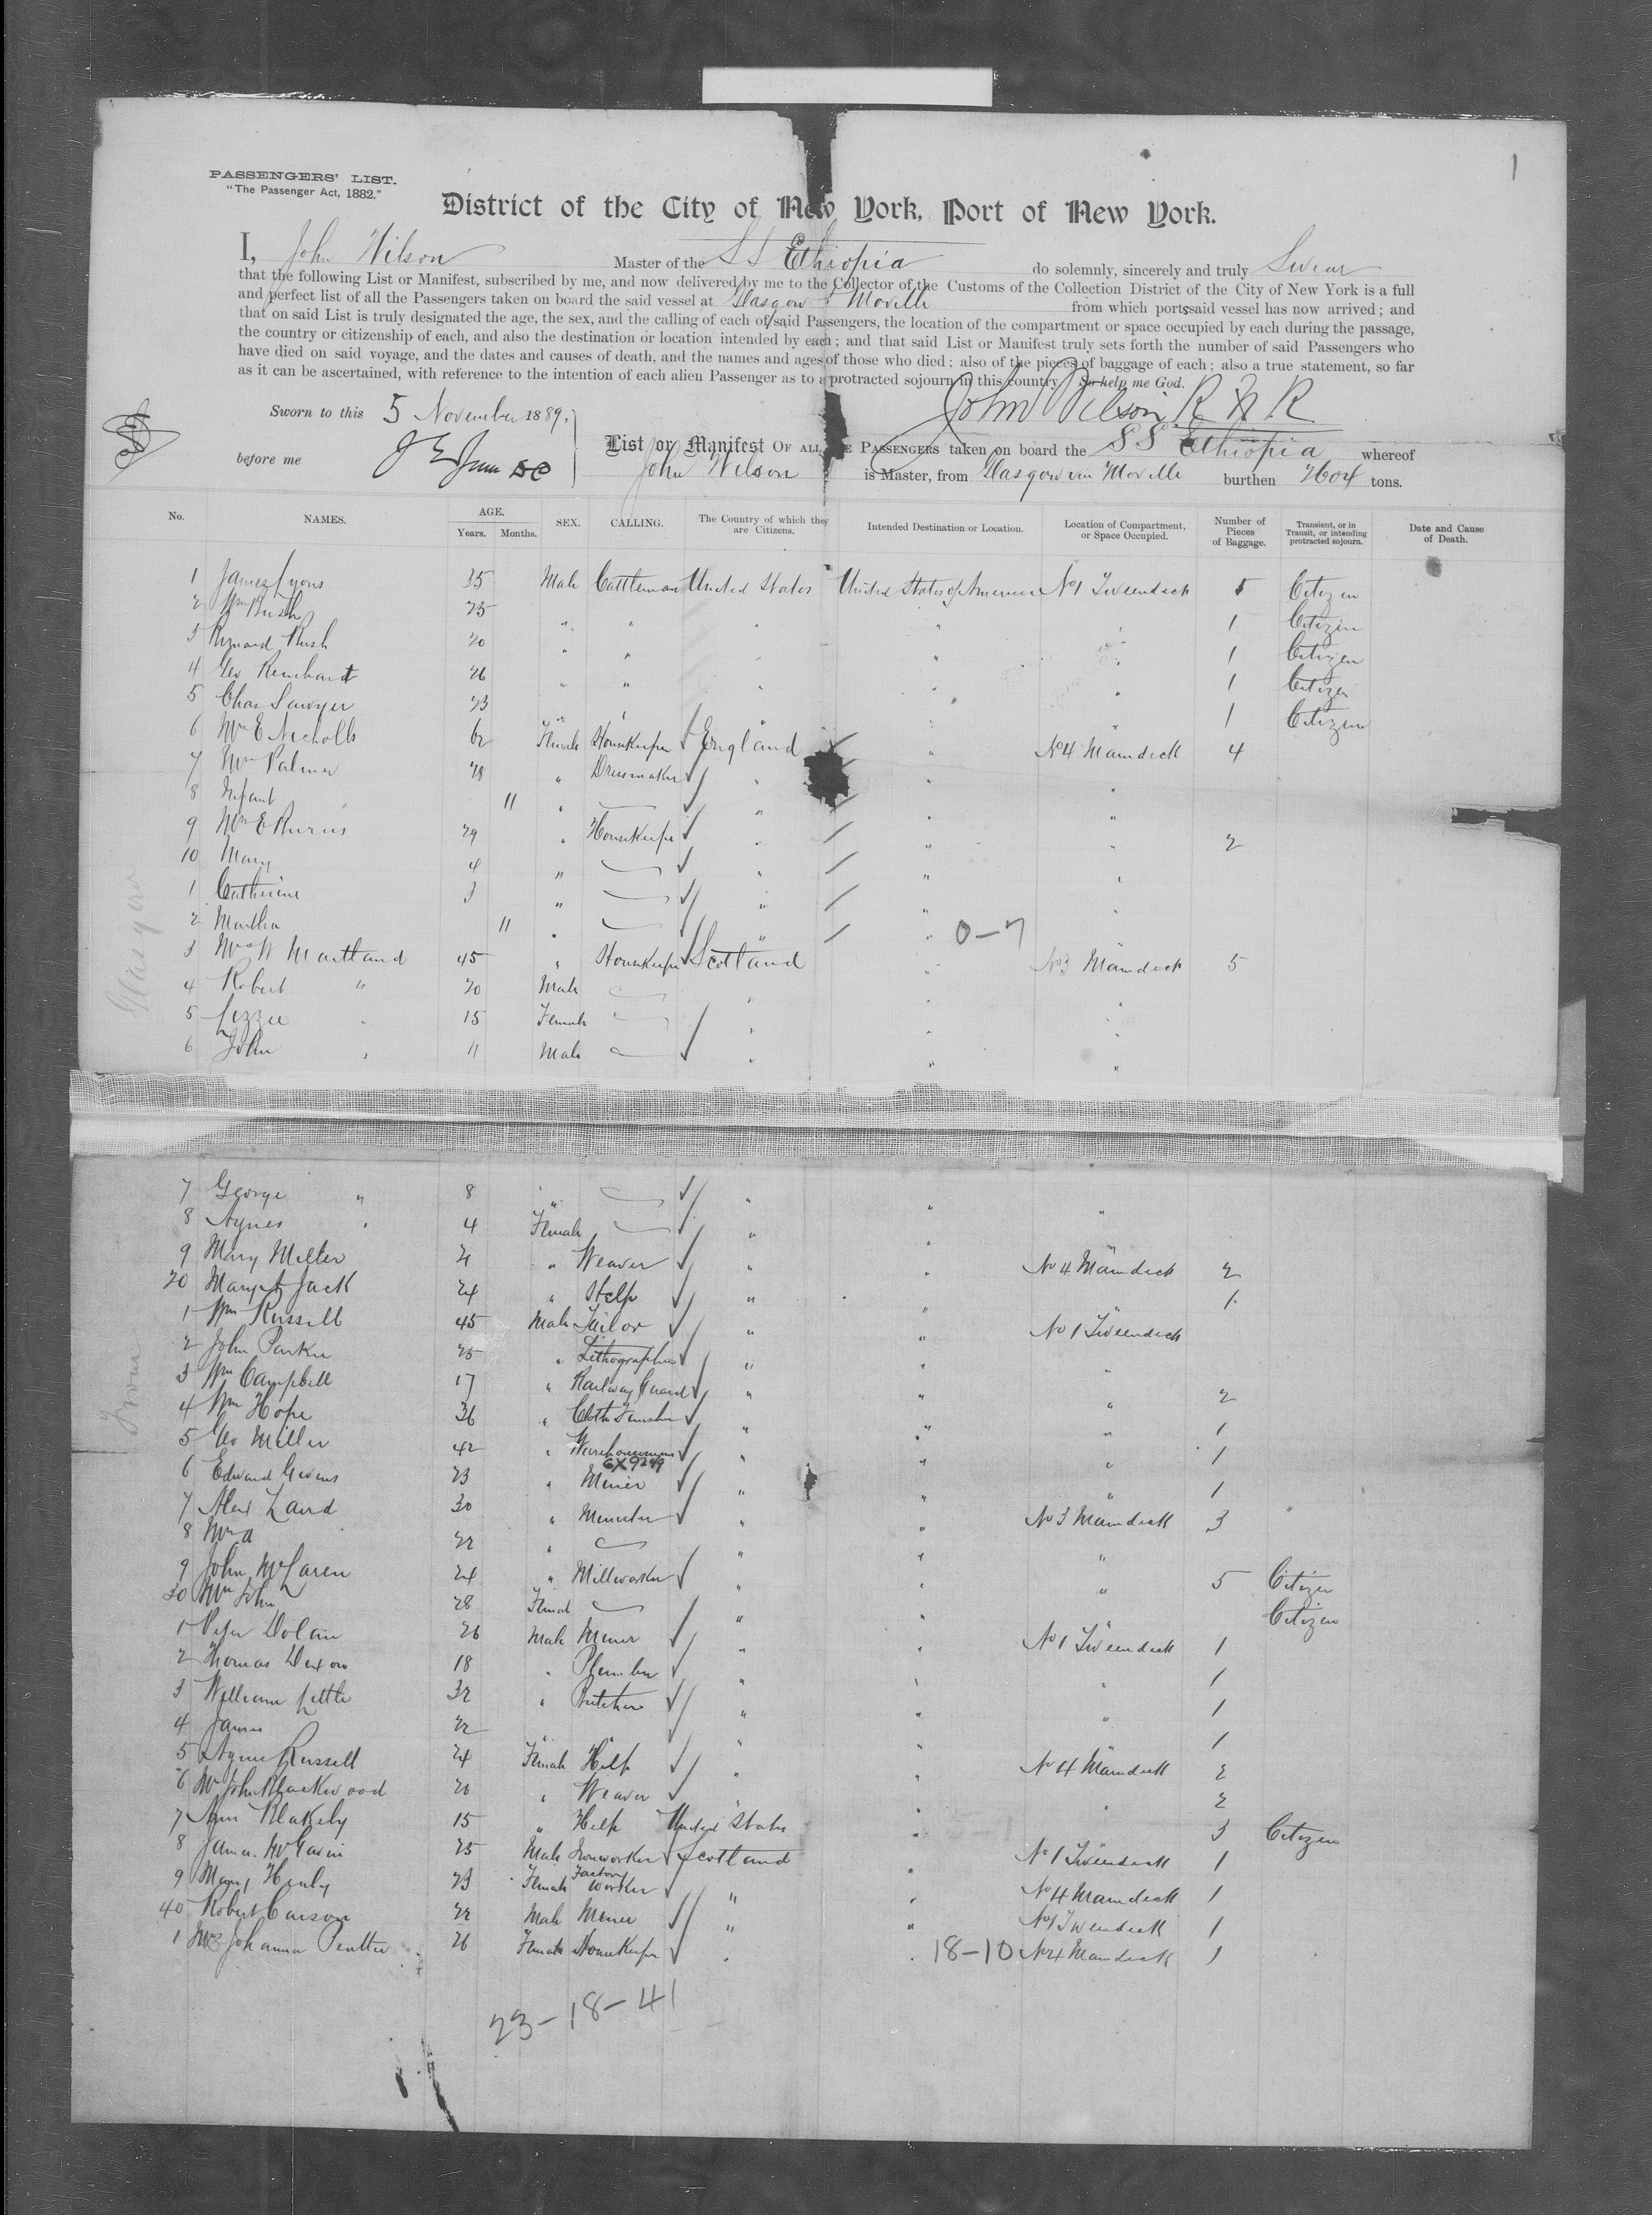 1
PASSENGERS' LIST.
"The Passenger Act, 1882."
District of the City of New York, Port of New York.
I, John Wilson Master of the SS Ethiopia do solemnly, sincerely and truly Swear
that the following List or Manifest, subscribed by me, and now delivered by me to the Collector of the Customs of the Collection District of the City of New York is a full
and perfect list of all the Passengers taken on board the said vessel at Glasgow & Moville from which ports said vessel has now arrived; and
that on said List is truly designated the age, the sex, and the calling of each of said Passengers, the location of the compartment or space occupied by each during the passage,
the country or citizenship of each, and also the destination or location intended by each; and that said List or Manifest truly sets forth the number of said Passengers who
have died on said voyage, and the dates and causes of death, and the names and ages of those who died; also of the pieces of baggage of each; also a true statement, so far
as it can be ascertained, with reference to the intention of each alien Passenger as to a protracted sojourn in this country. So help me God.
John Wilson R N R
Sworn to this 5 November 1889.
before me
List or Manifest OF ALL THE PASSENGERS taken on board the SS Ethiopia whereof
John Wilson is Master, from Glasgow via Moville burthen 2604 tons.
No. NAMES. AGE. Years. Months. SEX. CALLING. The Country of which they are Citizens. Intended Destination or Location. Location of Compartment, or Space Occupied. Number of Pieces of Baggage. Transient, or in Transit, or intending protracted sojourn. Date and Cause of Death.
Glasgow
1 James Lyons 35 Male Cattleman United States United States of America No 1 Tweendeck 5 Citizen
2 Wm Rush 25 " " " " " 1 Citizen
3 Bernard Rush 20 " " " " " 1 Citizen
4 Geo Reinhardt 26 " " " " " 1 Citizen
5 Chas Sawyer 23 " " " " " 1 Citizen
6 Mrs E Nicholls 62 Female Housekeeper England " No 4 Maindeck 4
7 Mrs Palmer 28 " Dressmaker " " "
8 Infant 11 " " " "
9 Mrs E Burns 29 " Housekeeper " " " 2
10 Mary 4 " " " "
1 Catherine 3 " " " "
2 Martha 11 " " " 0-7 "
3 Mrs W Maitland 45 " Housekeeper Scotland " No 3 Maindeck 5
4 Robert " 20 Male " " "
5 Lizzie " 15 Female " " "
6 John " 11 Male " " "
7 George " 8 " " " "
8 Agnes " 4 Female " " "
9 Mary Miller 21 " Weaver " " No 4 Maindeck 2
20 Mary A Jack 24 " Help " " " 1
1 Wm Russell 45 Male Tailor " " No 1 Tweendeck
2 John Parker 25 " Lithographer " " "
3 Wm Campbell 17 " Railway Guard " " " 2
4 Wm Hope 36 " Cloth Finisher " " " 1
5 Geo Miller 42 " Warehouseman " " " 1
6X9249
6 Edward Givens 23 " Miner " " " 1
7 Alex Laird 30 " Minister " " No 3 Maindeck 3
8 Mrs A 22 " " " "
9 John McLaren 24 " Millworker " " " 5 Citizen
30 Mrs John 28 Female " " Citizen
1 Peter Dolan 26 Male Miner " " No 1 Tweendeck 1
2 Thomas Dixon 18 " Plumber " " " 1
3 William Little 32 " Butcher " " " 1
4 James 22 " " " " 1
5 Agnes Russell 24 Female Help " " No 4 Maindeck 2
6 Mrs John Blackwood 20 " Weaver " " " 2
7 Ann Blakely 15 " Help United States " 3 Citizen
8 James McGavin 25 Male Ironworker Scotland " No 1 Tweendeck 1
9 Mary Henly 23 Female Factory Worker " " No 4 Maindeck 1
40 Robert Carson 22 Male Miner " " No 1 Tweendeck 1
1 Mrs Johanna Pentter 26 Female Housekeeper " " 18-10 No 4 Maindeck 1
23-18-41